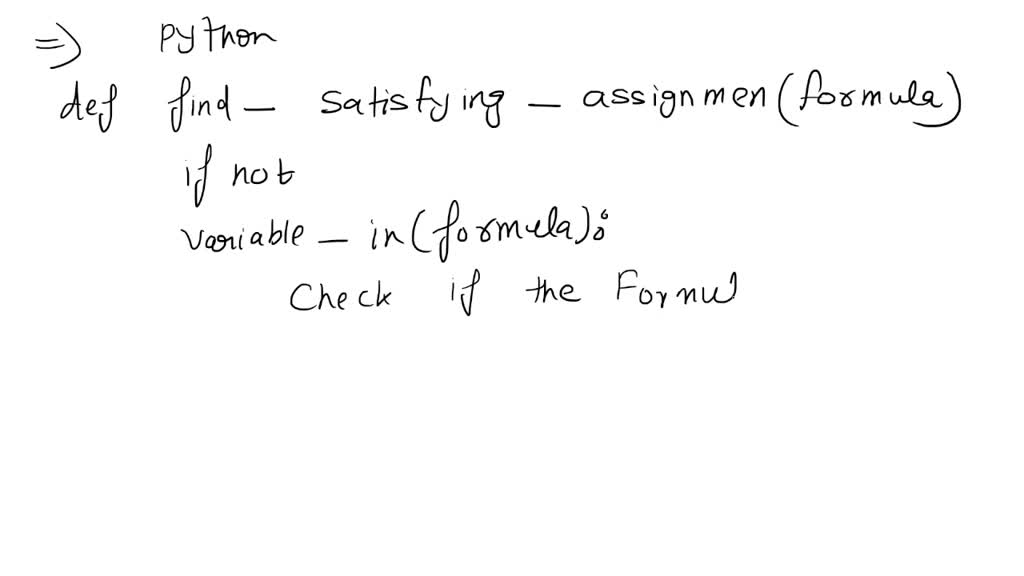 ⇒ python
def find_satisfying_assignmen(formula)
if not
variable_in(formula):
Check if the Formu